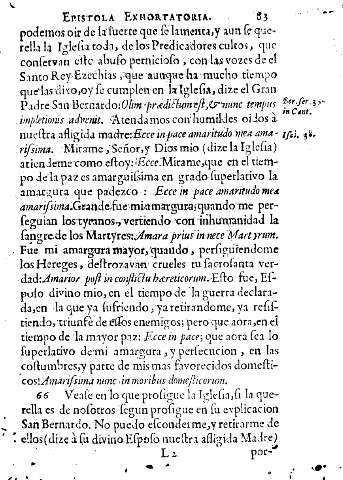 EPISTOLA EXHORTATORIA. 83
podemos oir de la suerte que se lamenta, y aun se que-
rella la Iglesia toda, de los Predicadores cultos, que
conservan este abuso pernicioso, con las vozes de el
Santo Rey Ezechias, que aunque ha mucho tiempo
que las dixo, oy se cumplen en la Iglesia, dize el Gran
Padre San Bernardo: Olim prædictum est, & nunc tempus
impletionis advenit. Atendamos con humildes oidos à
nuestra afligida madre: Ecce in pace amaritudo mea ama-
rissima. Mirame, Señor, y Dios mio (dize la Iglesia)
atiendeme como estoy: Ecce. Mirame, que en el tiem-
po de la paz es amarguissima en grado superlativo la
amargura que padezco: Ecce in pace amaritudo mea
amarissima. Grande fue mi amargura, quando me per-
seguian los tyranos, vertiendo con inhumanidad la
sangre de los Martyres: Amara prius in nece Martyrum.
Fue mi amargura mayor, quando, persiguiendome
los Hereges, destrozavan crueles tu sacrosanta ver-
dad: Amarior post in conflictu hæreticorum. Esto fue, Es-
poso divino mio, en el tiempo de la guerra declara-
da, en la que ya sufriendo, ya retirandome, ya resis-
tiendo, triunfè de essos enemigos; pero que aora, en el
tiempo de la mayor paz: Ecce in pace; que aora sea lo
superlativo de mi amargura, y persecucion, en las
costumbres, y parte de mis mas favorecidos domesti-
cos! Amarissima nunc in moribus domesticorum.
66 Vease en lo que prosigue la Iglesia, si la que-
rella es de nosotros segun prosigue en su explicacion
San Bernardo. No puedo esconderme, y retirarme de
ellos (dize à su divino Esposo nuestra afligida Madre)
L 2 por-
Ber. ser. 33.
in Cant.
Isai. 38.